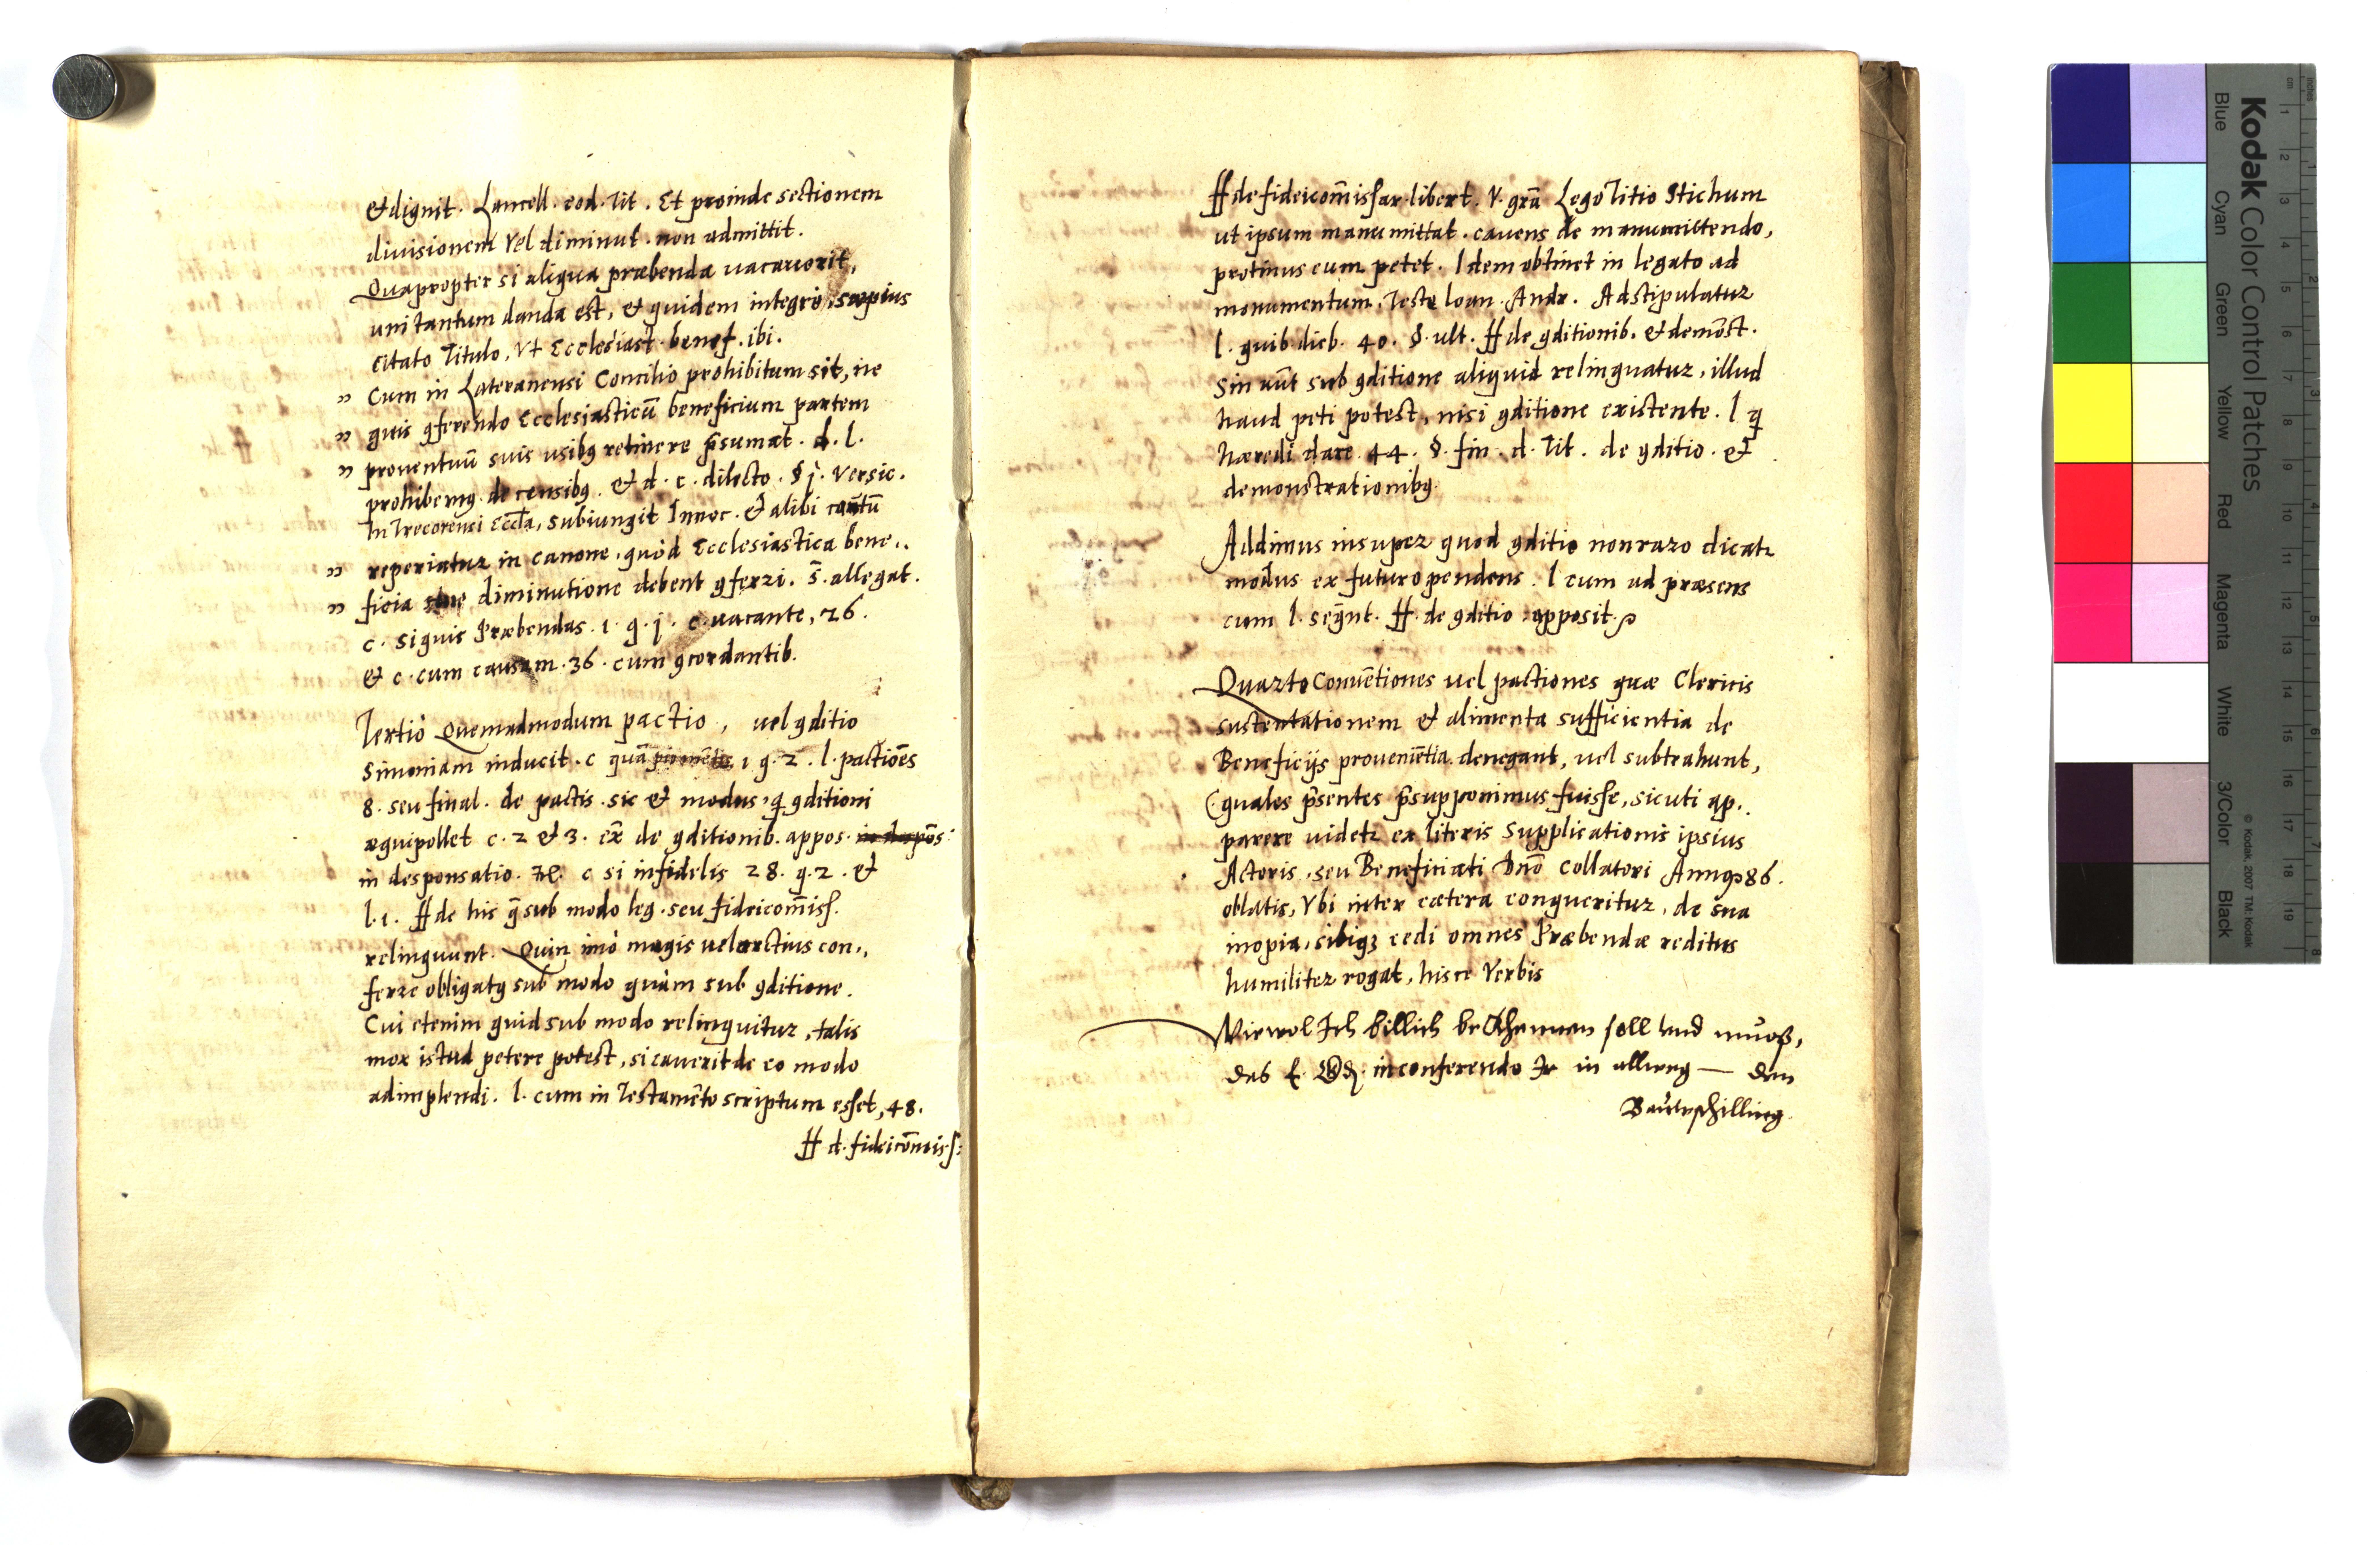 & dignit. Lancell. eod. Tit. Et proinde sectionem
diuisionem Vel diminut. non admittit.
Quapropter si aliqua præbenda uacauerit,
uni tantum danda est, & quidem integrè, sæpius
citato Titulo, Vt Ecclesiast. benef. ibi.
" Cum in Lateranensi Concilio prohibitum sit, ne
" quis ꝯferendo Ecclesiasticū beneficium partem
" prouentuū suis usibꝰ retinere p̃sumat. d. l.
prohibemꝰ de censibꝰ. & d. c. dilecto. § j. Versic.
In Trecorensi Eccl̃a, subiungit Innoc. & alibi cautū
" reperiatur in canone, quòd Ecclesiastica bene..
" ficia sine diminutione debent ꝯferri. s̃. allegat.
c. si quis Præbendas. 1. q. j. c. uacante, 26.
& c. cum causam. 36. cum ꝯcordantib.
Tertiò Quemadmodum pactio, uel ꝯditio
Simoniam inducit. c quā pio 1 q. 2. l. pactiōes
8. seu final. de pactis. sic & modus, q̃ ꝯditioni
æquipollet c. 2 & 3. ex̃ de ꝯditionib. appos.
in desponsatio. c si infidelis 28. q. 2. &
l. 1. ff de his q̃ sub modo leg. seu fideicom̃iss.
relinquunt. Quin imò magis uel arctius con..
ferre obligatꝰ sub modo quàm sub ꝯditione.
Cui etenim quid sub modo relinquitur, talis
mox istud petere potest, si cauerit de eo modo
adimplendi. l. cum in Testamēto scriptum esset, 48.
ff d. fideicōmiss:
ff de fideicom̃issar. libert. V. grã Lego Titio Stichum
ut ipsum manumittat. cauens de manumittendo,
protinus eum petet. Idem obtinet in legato ad
monumentum, Teste Ioan. Andr. Adstipulatur
l. quib. dieb. 40. §. ult. ff de ꝯditionib. & demōst.
Sin aūt sub ꝯditione aliquid relinquatur, illud
haud peti potest, nisi ꝯditione existente. l. q̃
hæredi dare 44. §. fin. d. Tit. de ꝯditio. &
demonstrationibꝰ.
Addimus insuper quod ꝯditio non raro dicat̃
modus ex futuro pendens. l cum ad præsens
cum l. seq̃nt. ff. de ꝯditio apposit.
Quarto Conuētiones uel pactiones quæ Clericis
sustentationem & alimenta sufficientia de
Beneficijs prouenientia denegant, uel subtrahunt,
(quales p̃sentes p̃supponimus fuisse, sicuti ap..
parere uidet̃ ex literis Supplicationis ipsius
Actoris, seu Beneficiati Dn̄o Collatori Anno 86.
oblatis, Vbi inter cætera conqueritur, de sua
inopia, sibiq3 cedi omnes Præbendæ reditus
humiliter rogat, hisce Verbis
Wiewol Ich billich bekhennen soll und muoß,
das E. in conferendo Ir in allweg — den
Bauwschilling.